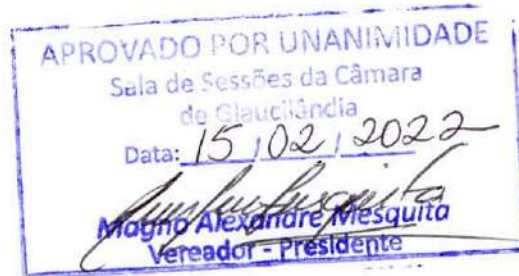 APROVADO POR UNANIMIDADE
Sala de Sessões da Câmara
de Glaucilândia
Data: 15 / 02 / 2022
Magno Alexandre Mesquita
Vereador - Presidente